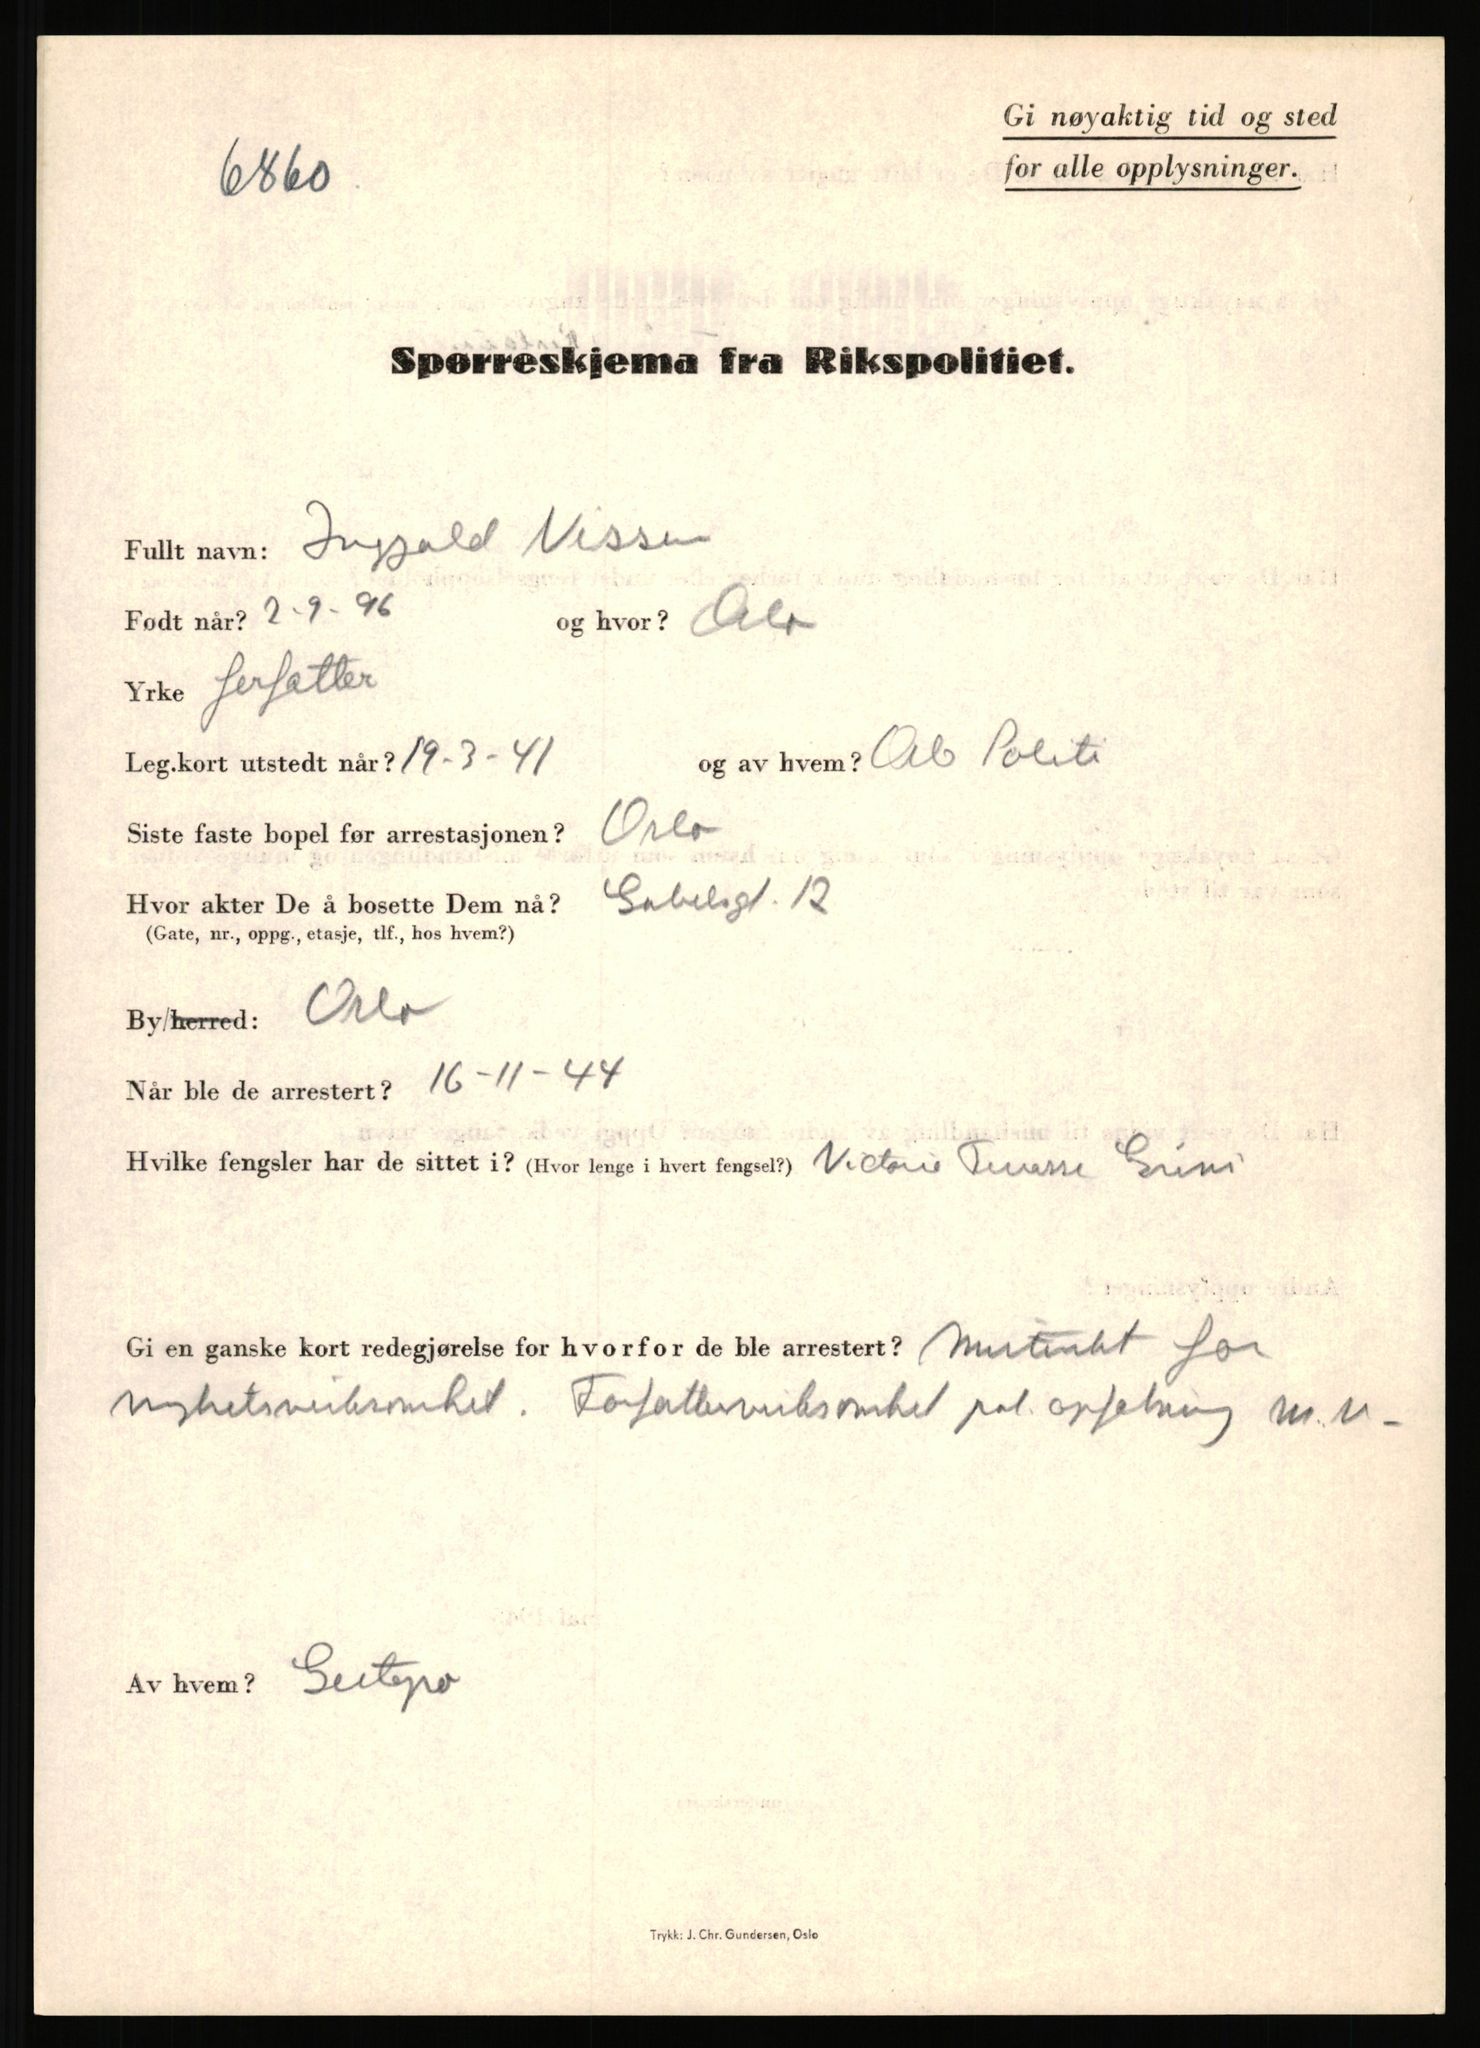 Gi nøyaktig tid og sted
for alle opplysninger.
6860
Spørreskjema fra Rikspolitiet.
Fullt navn: Ingjald Nissen
Født når? 2-9-96 og hvor? Oslo
Yrke forfatter
Leg.kort utstedt når? 19-3-41 og av hvem? Oslo Politi
Siste faste bopel før arrestasjonen? Oslo
Hvor akter De å bosette Dem nå? Gabelsgt. 12
(Gate, nr., oppg., etasje, tlf., hos hvem?)
By/herred: Oslo
Når ble de arrestert? 16-11-44
Hvilke fengsler har de sittet i? (Hvor lenge i hvert fengsel?) Victoria Terasse Grini
Gi en ganske kort redegjørelse for hvorfor de ble arrestert? Mistenkt for
nyhetsvirksomhet. Forfattervirksomhet pol. opfatning m.m-
Av hvem? Gestapo
Trykk: J. Chr. Gundersen, Oslo